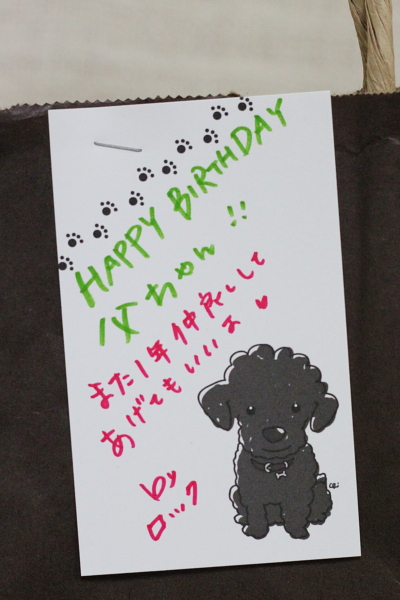 HAPPY BIRTHDAY
父ちゃん !!
また1年仲良しして
あげてもいいよ♥
by
ロック